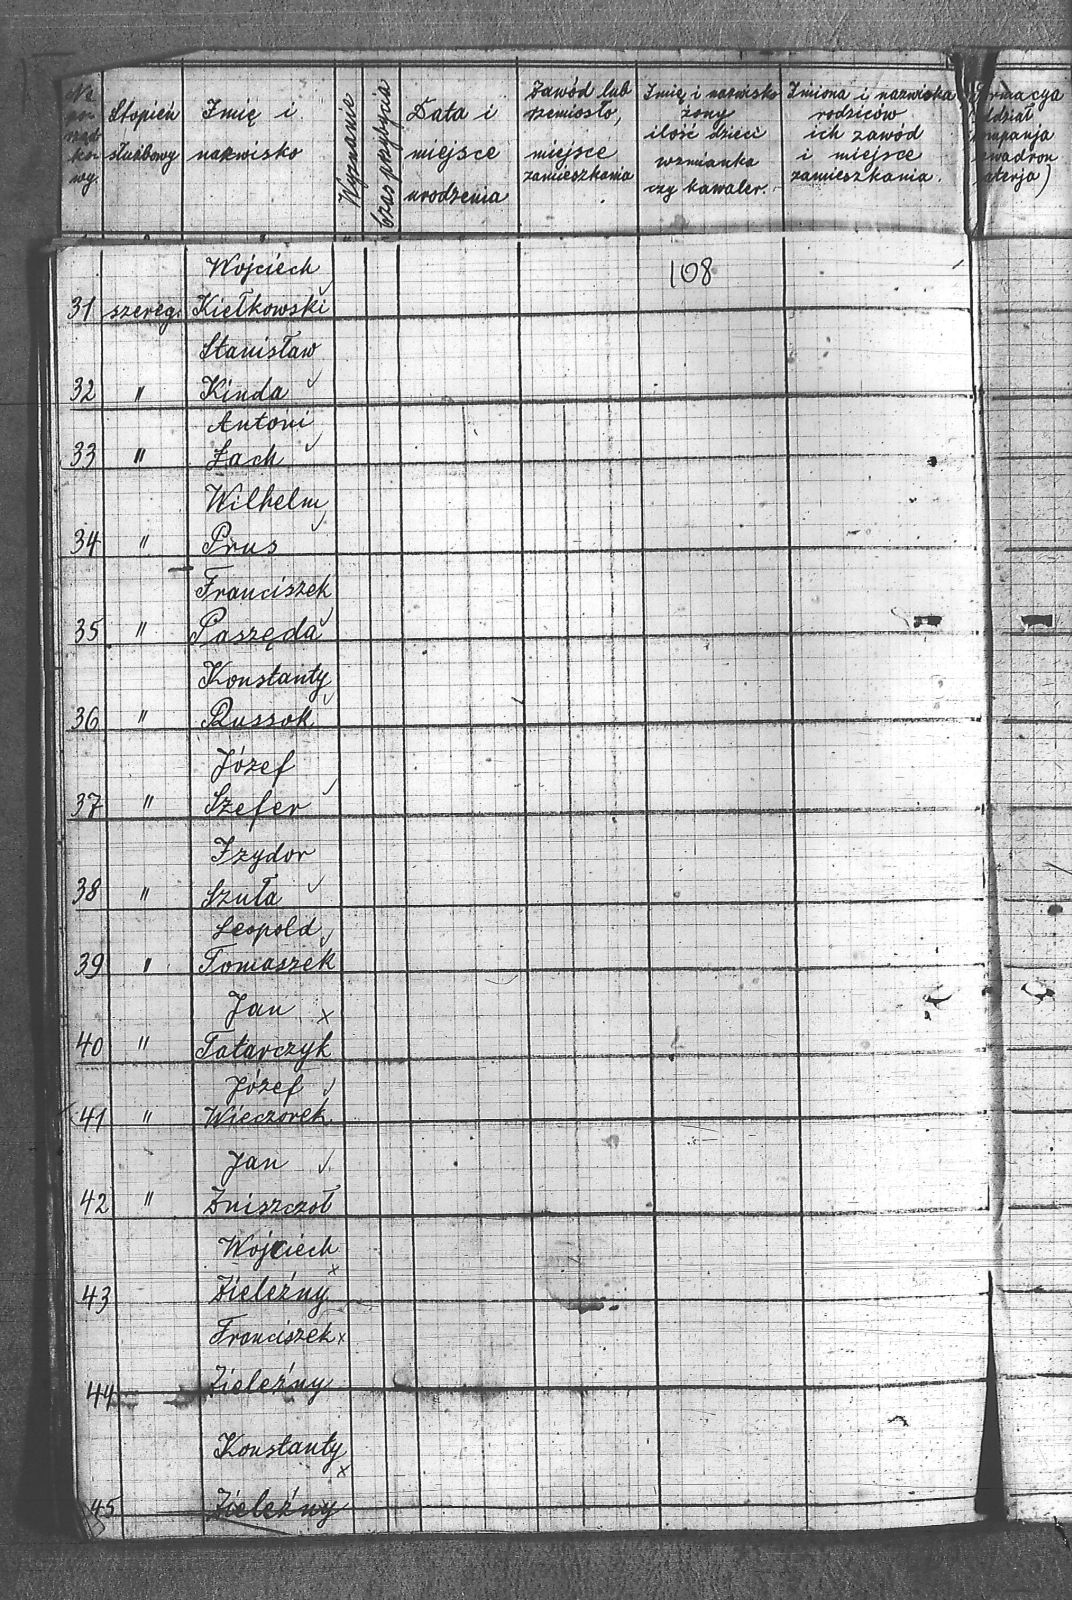 № po- rząd- ko- wy.
Stopień służbowy
Imię i nazwisko
Wyznanie
Czas przybycia
Data i miejsce urodzenia
Zawód lub rzemiosło, miejsce zamieszkania
Imię i nazwisko żony ilość dzieci wzmianka czy kawaler.
Imiona i nazwiska rodziców ich zawód i miejsce zamieszkania.
rmacya
dział
mpanja
wadron
aterja)
108
Wojciech
31 szereg. Kiełkowski
Stanisław
32 " Kinda
Antoni
33 " Łach
Wilhelm
34 " Prus
Franciszek
35 " Paszęda
Konstanty
36 " Russok
Józef
37 " Szefer
Izydor
38 " Szuła
Leopold
39 " Tomaszek
Jan x
40 " Tatarczyk
Józef
41 " Wieczorek
Jan
42 " Zniszczoł
Wojciech x
43 Zieleźny
Franciszek x
44 Zieleźny
Konstanty x
45 Zieleźny